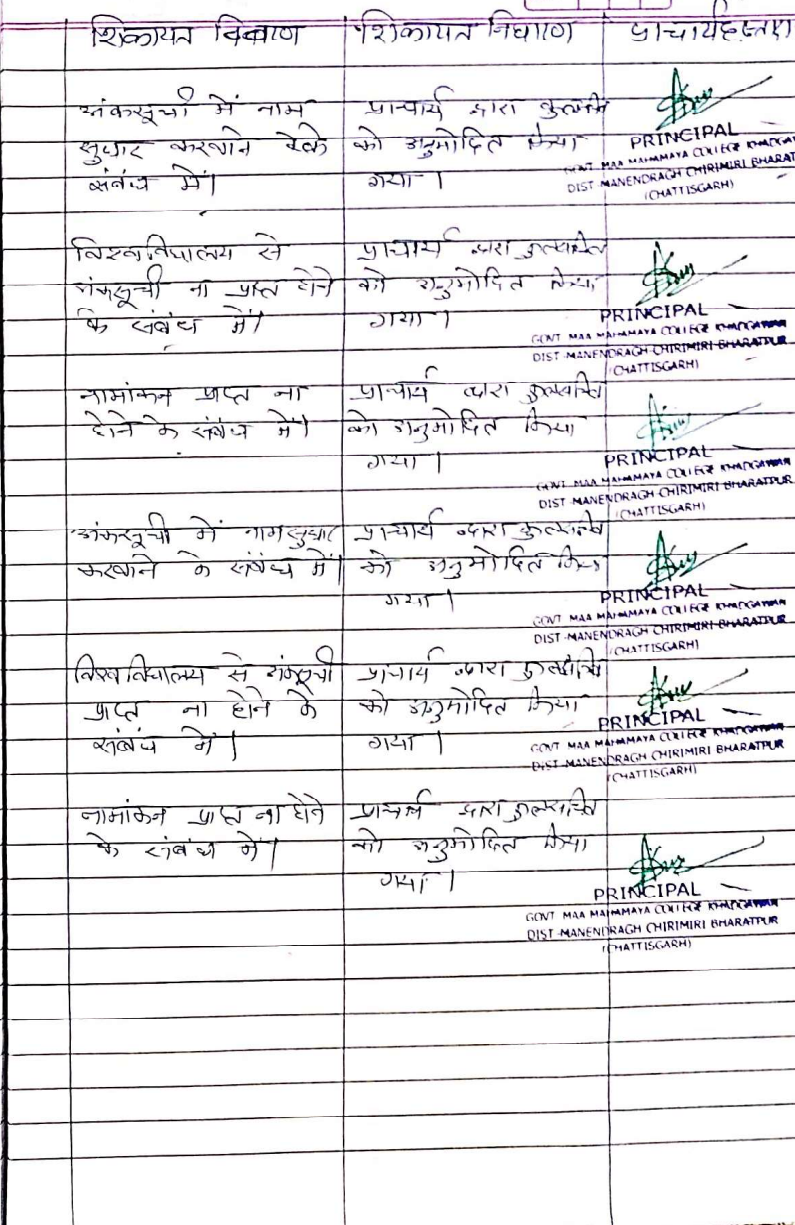 शिकायत विवरण शिकायत निवारण प्राचार्य हस्ताक्षर
अंकसूची में नाम
सुधार करवाने
संबंध में।
प्राचार्य द्वारा कुलसचिव
को अनुमोदित किया
गया।
PRINCIPAL
GOVT MAA MAHAMAYA COLLEGE KHADGAWAN
DIST-MANENDRAGH CHIRIMIRI BHARATPUR
(CHATTISGARH)
विश्वविद्यालय से
अंकसूची ना प्राप्त होने
के संबंध में।
प्राचार्य द्वारा कुलसचिव
को अनुमोदित किया
गया।
PRINCIPAL
GOVT MAA MAHAMAYA COLLEGE KHADGAWAN
DIST-MANENDRAGH CHIRIMIRI BHARATPUR
(CHATTISGARH)
नामांकन प्राप्त ना
होने के संबंध में।
प्राचार्य द्वारा कुलसचिव
को अनुमोदित किया
गया।
PRINCIPAL
GOVT MAA MAHAMAYA COLLEGE KHADGAWAN
DIST-MANENDRAGH CHIRIMIRI BHARATPUR
(CHATTISGARH)
अंकसूची में नाम सुधार
करवाने के संबंध में।
प्राचार्य द्वारा कुलसचिव
को अनुमोदित किया
गया।
PRINCIPAL
GOVT MAA MAHAMAYA COLLEGE KHADGAWAN
DIST-MANENDRAGH CHIRIMIRI BHARATPUR
(CHATTISGARH)
विश्वविद्यालय से अंकसूची
प्राप्त ना होने के
संबंध में।
प्राचार्य द्वारा कुलसचिव
को अनुमोदित किया
गया।
PRINCIPAL
GOVT MAA MAHAMAYA COLLEGE KHADGAWAN
DIST-MANENDRAGH CHIRIMIRI BHARATPUR
(CHATTISGARH)
नामांकन प्राप्त ना होने
के संबंध में।
प्राचार्य द्वारा कुलसचिव
को अनुमोदित किया
गया।
PRINCIPAL
GOVT MAA MAHAMAYA COLLEGE KHADGAWAN
DIST-MANENDRAGH CHIRIMIRI BHARATPUR
(CHATTISGARH)